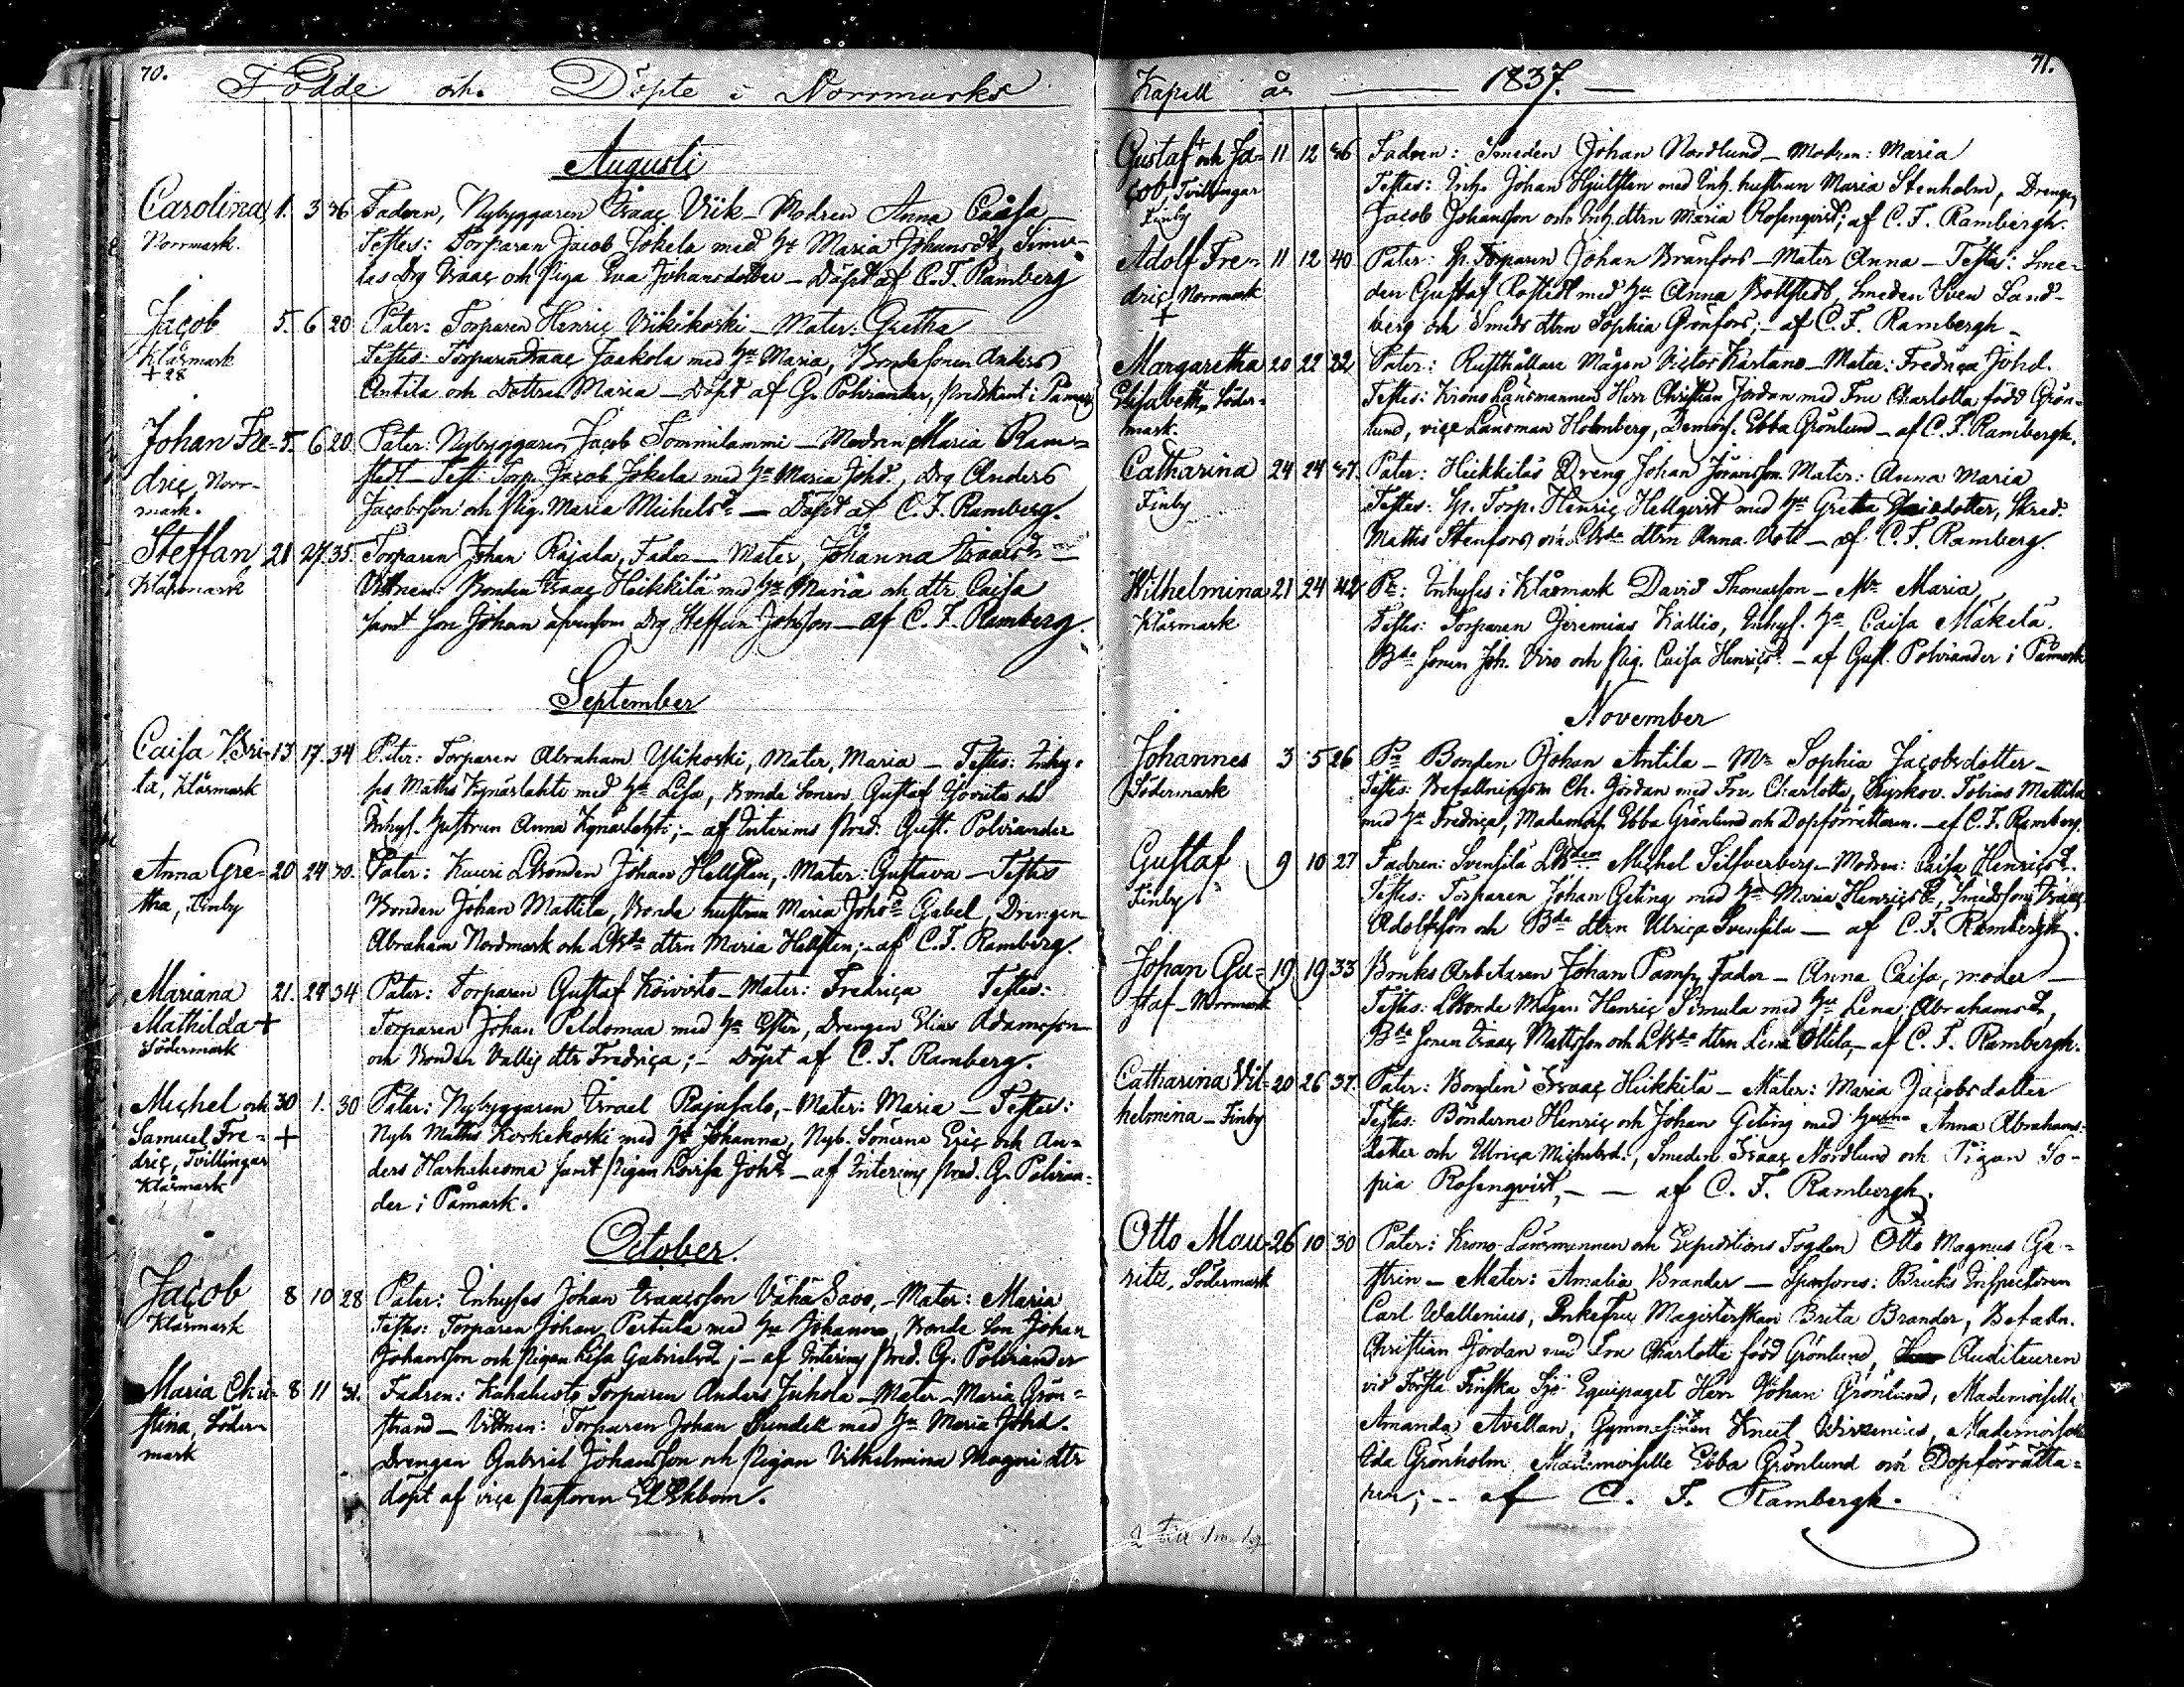 70.
Födde och Döpte i Norrmarks
Augusti
Carolina, 1. 3 36 Fadren, Nybyggaren Isaac Viik – Modren Anna Caisa –
Norrmark. Testes: Torparen Jacob Jokela med H:u Maria Johansdr, Simu-
las Drg Isaac och Piga Eva Johansdotter – Döpt af C. F. Ramberg
Jacob 5. 6 20 Pater: Torparen Henric Viikikoski – Mater: Gretha
Klåsmark Testes: Torparen Isaac Jaakola med H:u Maria, Bonde Sonen Anders
+ 28 Antila och Dottren Maria – Döpt af G. Polviander, Predikant i Påmark
Johan Fre- 5. 6 20. Pater: Nybyggaren Jacob Tommilammi – Modren Maria Ram-
dric, Norr- stedt – Test. Torp. Jacob Jokela med H:u Maria Johd., Drg Anders
mark. Jacobsson och Pig. Maria Michelsd:r – Döpt af C. F. Ramberg.
Steffan, 21 27. 35. Torparen Johan Rajala, Fader – Mater, Johanna Isaacsdr –
Klåsmark Vittnen: Bonden Isaac Heikkilä med H:u Maria och dtr Caisa
samt son Johan äfvensom Drg Steffan Johsson – af C. F. Ramberg.
September
Caisa Bri- 13. 17. 34 Pater: Torparen Abraham Ylikoski, Mater, Maria – Testes: Inhy-
ta, Klåsmark ses Maths Kynäslahti med H:u Lisa, Bonde Sonen Gustaf och
Inhys. Hustrun Anna Kynäslahti; – af Interims Pred. Gust. Polviander
Anna Gre- 20 24 30. Pater: Kauri LBonden Johan Hellsten, Mater: Gustava – Testes
tha, Finby Bonden Johan Mattila, Bonde hustrun Maria Johsd Gabel, Drengen
Abraham Nordmark och LB:de dtrn Maria Hellsten; – af C. F. Ramberg.
Mariana 21. 24 34 Pater: Torparen Gustaf Koivisto – Mater: Fredrica Testes:
Mathilda + Torparen Johan Peldomaa med H:u Ester, Drengen Elias Adamsson
Södermark och Bonden Vallis dtr Fredrica; – Döpt af C. F. Ramberg.
Michel och 30 1. 30 Pater: Nybyggaren Israel Rajusalo, – Mater: Maria – Testes:
Samuel Fre- + Nybr Maths Koskekoski med H:u Johanna, Nyb. Sönerna Eric och An-
dric, Tvillingar ders Harhaluoma samt Pigan Lovisa Johd – af Interims Pred. G. Polvian-
Klåsmark der i Påmark.
October.
Jacob 8 10 28 Pater: Inhyses Johan Isaacsson Vähä Savo, – Mater: Maria
Klåsmark Testes: Torparen Johan Pertula med H:u Johanna, Bonde Son Johan
Johansson och Pigan Lisa Gabrielsd; – af Interims Pred. G. Polviander
Maria Chri- 8 11 31. Fadren: Torparen Anders Juhola – Mater – Maria Grön-
stina, Söder- strand – Vittnen: Torparen Johan Sundell med H:u Maria Johd.
mark Drengen Gabriel Johansson och Pigan Vilhelmina Magni dtr
döpt af vice Pastoren Ekbom.
Kapell år 1837. 71.
Gustaf och Ja- 11 12 36 Fadren: Smeden Johan Nordlund – Modren: Maria
cob, Tvillingar Testes: Inh. Johan Hjulsten med Inh. hustrun Maria Stenholm, Drengen
Finby Jacob Johansson och Inh. dtrn Maria Rosenqvist; af C. F. Rambergh.
Adolf Fre- 11 12 40 Pater: Sp. Torparen Johan Branfors – Mater Anna – Testes: Sme-
dric, Norrmark den Gustaf Rostedt med H:u Anna Bollstedt, Smeden Sven Sand-
+ berg och Smeds dtrn Sophia Grönfors; – af C. F. Rambergh –
Margaretha 20 22 22 Pater: Rusthållare Mågen Victor Kartano – Mater: Fredrica Johd.
Elisabeth, Söder- Testes: Krono Länsmannen Herr Christian Jordan med Fru Charlotta född Grön-
mark. lund, vice Länsman Holmberg, Demois. Ebba Grönlund – af C. F. Rambergh.
Catharina 24 24 37. Pater: Heikkiläs Dreng Johan Göransson. Mater: Anna Maria
Finby Testes: Sp. Torp. Henric Hellqvist med H:u Gretha dotter, Skred.
Maths Stenfors och LB:de dtrn Anna – af C. F. Ramberg.
Wilhelmina 21 24 42 P:r: Inhyses i Klåsmark David Thomasson – M:r Maria,
Klåsmark Testes: Torparen Jeremias Kallio, Inhys. H:u Caisa Mäkelä.
B:de Sonen Joh. Viro och Pig. Caisa Henricsd. – af Gust. Polviander i Påmark
November
Johannes 3 5 26 P:r Bonden Johan Antila – M:r Sophia Jacobsdotter –
Södermark Testes: Befallningsm Ch. Jordan med Fru Charlotta, Kyrkov. Tobias Mattila
med H:u Fredrica, Mademois. Ebba Grönlund och Dopförrättaren. – af C. F. Ramberg.
Gustaf 9 10 27 Fadren: Svensilä LB:den Michel Silfverberg – Modren: Caisa Henricsd.
Finby Testes: Torparen Johan Geting med H:u Maria Henricsd, Smedsson Isaac
Adolfsson och B:de dtrn Ulrica Svensila – af C. F. Rambergh.
Johan Gu- 19 19 33 Bruks Arbetaren Johan Pamp, Fader – Anna Caisa, moder –
staf – Norrmark Testes: LBonde Mågen Henric Simula med H:u Lena Abrahamsdr,
B:de Sonen Isaac Mattsson och LB:de dtrn Lena Ollila, – af C. F. Rambergh.
Catharina Vil- 20 26 37. Pater: Bonden Isaac Heikkilä – Mater: Maria Jacobsdotter
helmina – Finby Testes: Bönderne Henric och Johan Geting med Anna Abrahams-
dotter och Ulrica Michelsd., Smeden Isaac Nordlund och Pigan So-
phia Rosenqvist, – – af C. F. Rambergh.
Otto Mau- 26 10 30 Pater: Krono-Länsmannen och Expeditions Fogden Otto Magnus Ga-
ritz, Södermark strin – Mater: Amalia Brander – Sponsores: Bruks Inspectoren
Carl Wallenius, Enkefru Magisterskan Brita Brander, Befalln.
Christian Jordan med Fru Charlotta född Grönlund, Auditeuren
vid Första Finska Sjö Equipaget Herr Johan Grönlund, Mademoiselle
Amanda Avellan, Gymnasisten Knut Wirzenius, Mademoiselle
Ida Grönholm Mademoiselle Ebba Grönlund och Dopförrätta-
ren; – – af C. F. Rambergh.